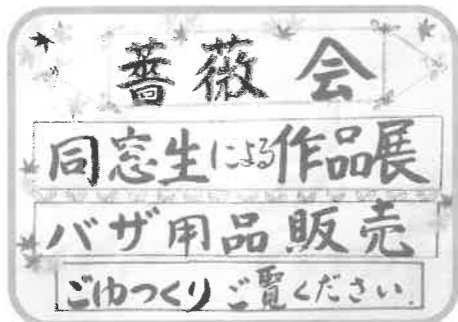 薔薇会
同窓生による作品展
バザ用品販売
ごゆっくりご覧ください.